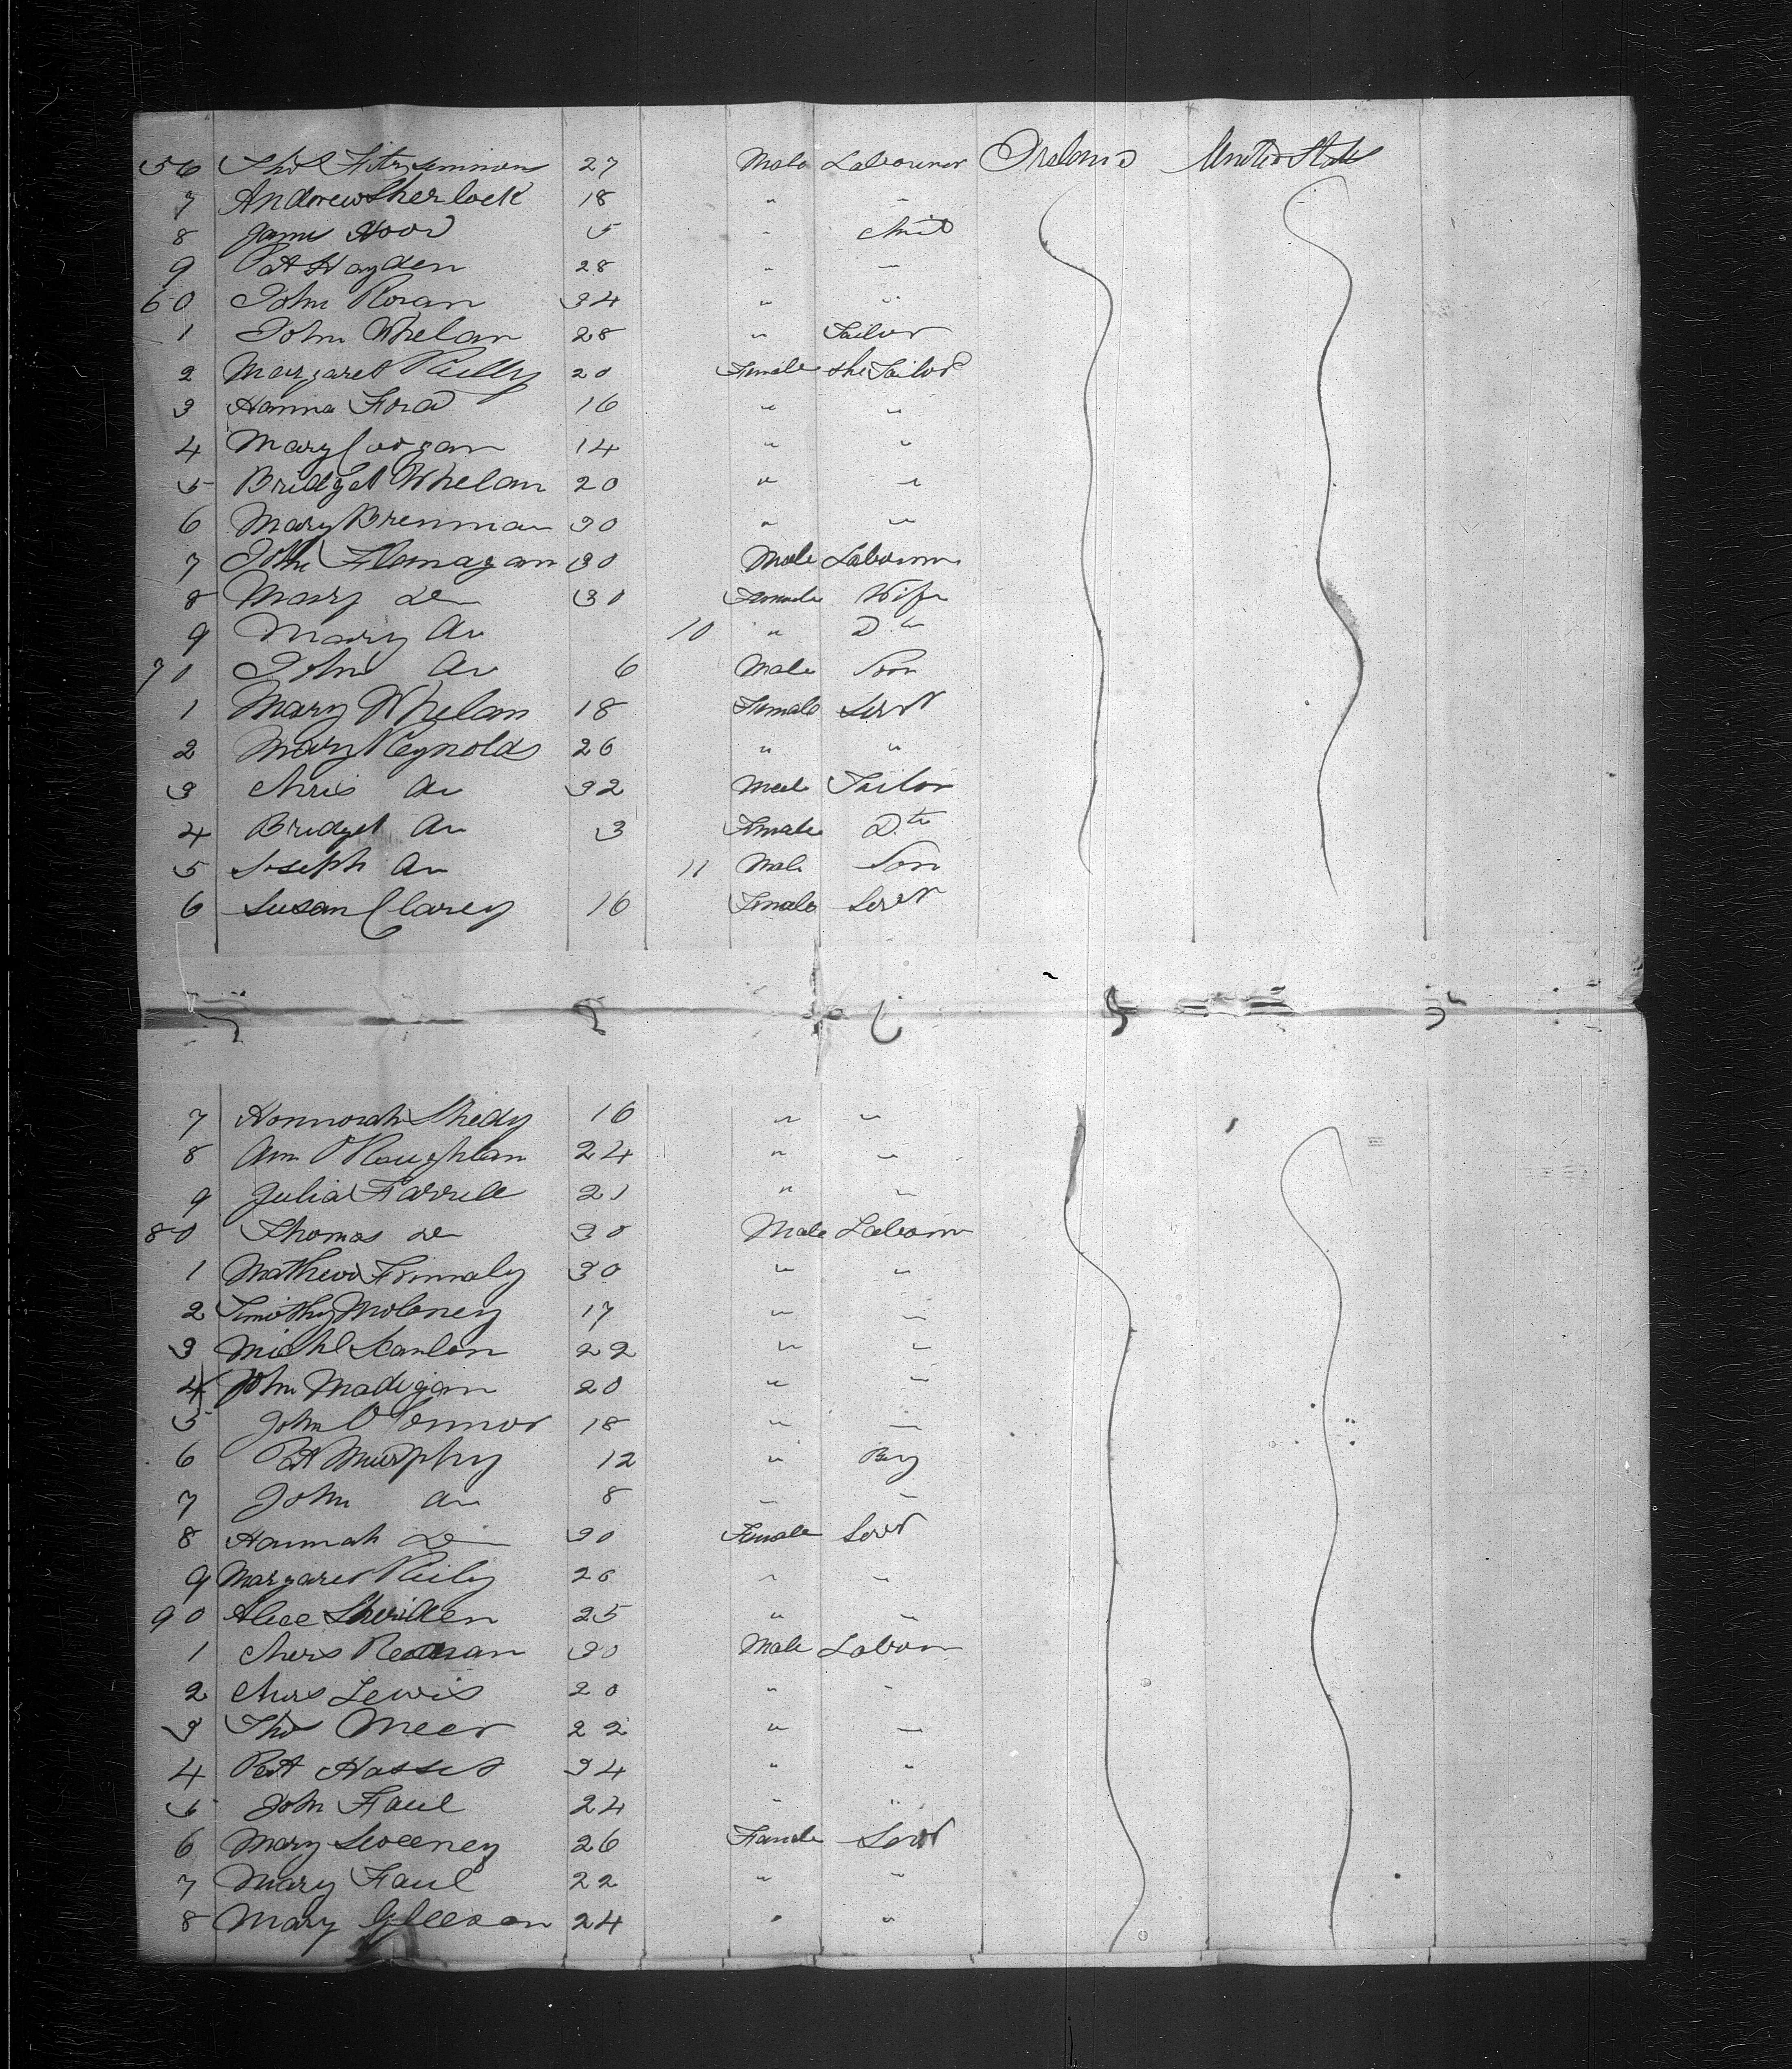 56 Thos Fitzsimmons 27 Male Labourer Ireland United States
7 Andrew Sherlock 18 " "
8 James Hood 5 " Child
9 Pat Hayden 28 " "
60 John Roran 34 " "
1 John Whelan 28 " Tailor
2 Margaret Reilly 20 Female she Tailor
3 Hanna Ford 16 " "
4 Mary Coogan 14 " "
5 Bridget Whelan 20 " "
6 Mary Brennan 30 " "
7 John Flanagan 30 Male Labourer
8 Mary Do 30 Female Wife
9 Mary Do 10 " Dtr
70 John Do 6 Male Son
1 Mary Whelan 18 Female Servt
2 Mary Reynolds 26 " "
3 Chris Do 32 Male Tailor
4 Bridget Do 3 Female Dtr
5 Joseph Do 11 Male Son
6 Susan Clarey 16 Female Servt
7 Honnorah Shedy 16 " "
8 Ann O'Loughlan 24 " "
9 Julia Farrell 21 " "
80 Thomas Do 30 Male Labour
1 Mathew Finnaly 30 " "
2 Timothy Moloney 17 " "
3 Michl Scanlon 22 " "
4 John Madigan 20 " "
5 John O'Connor 18 " "
6 Pat Murphy 12 " Boy
7 John Do 8 " "
8 Hannah Do 30 Female Servt
9 Margaret Reily 26 " "
90 Alice Sheriden 25 " "
1 Chris 30 Male Labour
2 Chris Lewis 20 " "
3 Thos Meer 22 " "
4 Pat Hasset 34 " "
5 John Faul 24 " "
6 Mary Sweeney 26 Female Servt
7 Mary Faul 22 " "
8 Mary Gleeson 24 " "